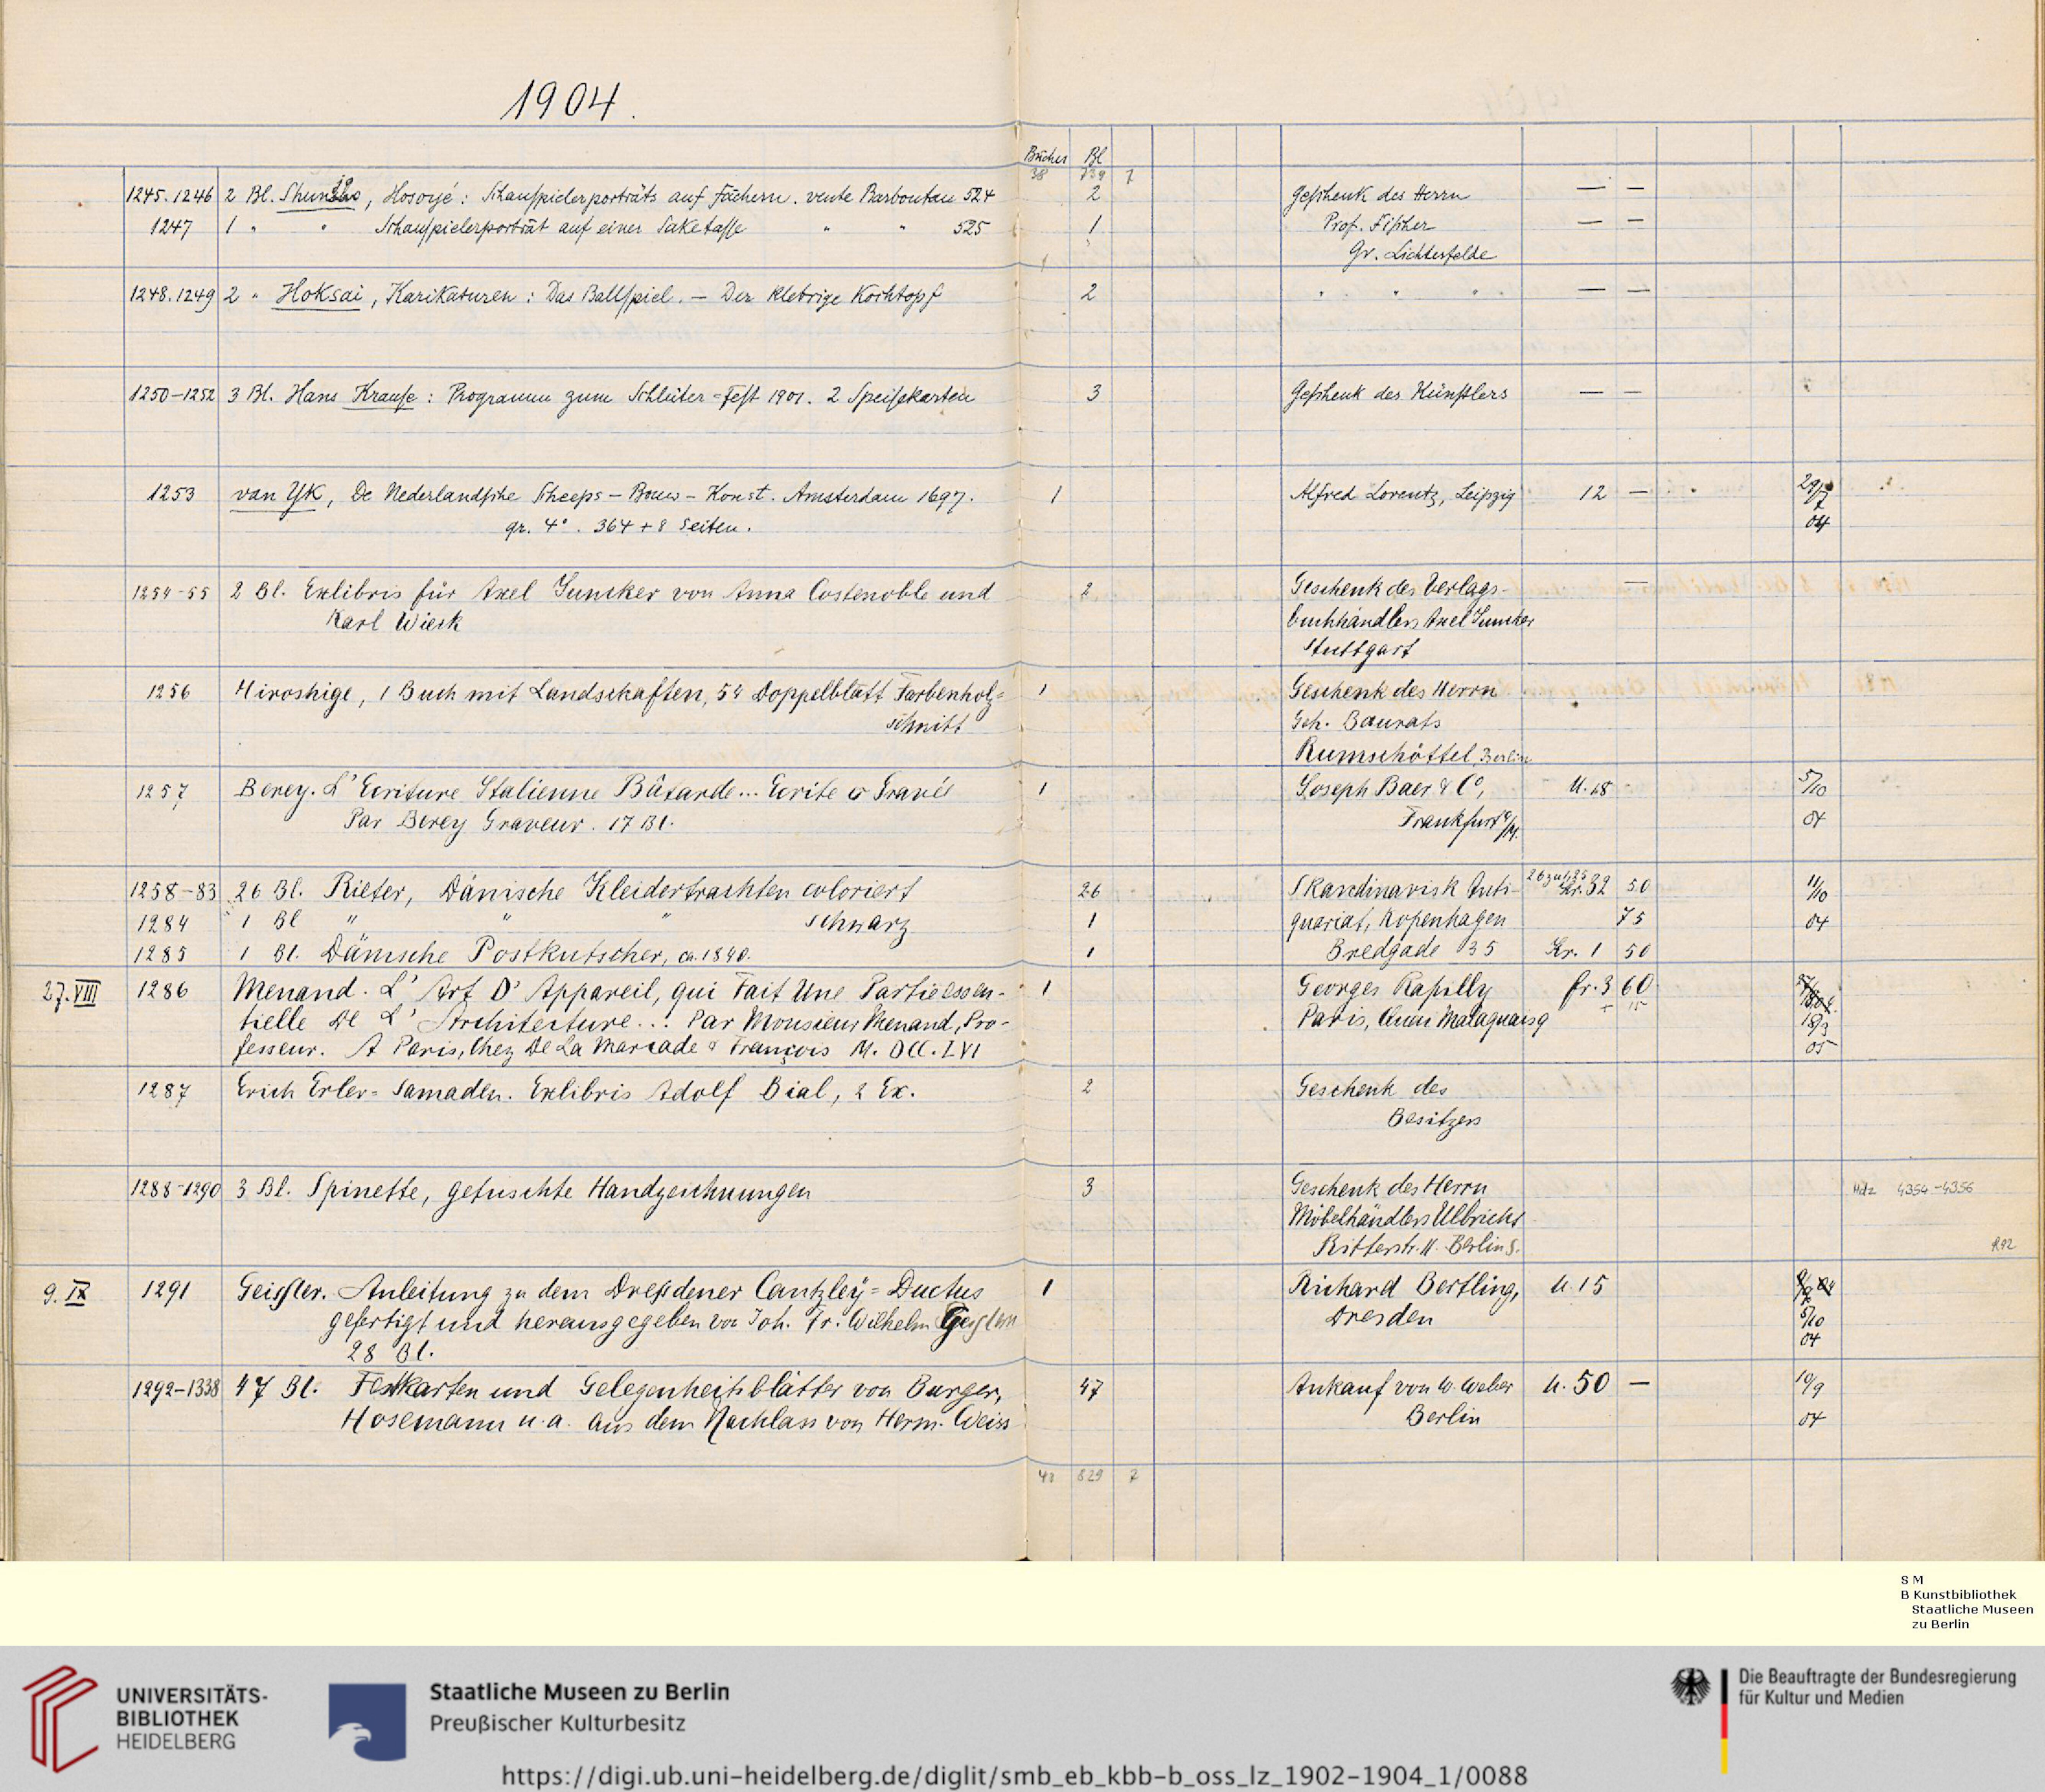 1904.
Bücher Bl
38 739 7
1245.1246 2 Bl. , Hosoyé: Schauspielerporträts auf Fächern. vente Barboutau 524 2 Geschenk des Herrn — —
1247 1 " " Schauspielerporträt auf einer Saketasse " " 525 1 Prof. Fischer — —
Gr. Lichterfelde
1248.1249 2 " Hoksai, Karikaturen: Das Ballspiel. — Der klebrige Kochtopf 2 " " " " — —
1250–1252 3 Bl. Hans Krause: Programm zum Schlüter=Fest 1901. 2 Speisekarten 3 Geschenk des Künstlers — —
1253 van Yk, De Nederlandsche Scheeps–Bouw–Konst. Amsterdam 1697. 1 Alfred Lorentz, Leipzig 12 — 29/7
gr. 4°. 364 + 8 Seiten. 04
1254-55 2 Bl. Exlibris für Axel Juncker von Anna Costenoble und 2 Geschenk des Verlags- —
Karl Wieck buchhändlers Axel Juncker
Stuttgart
1256 Hiroshige, 1 Buch mit Landschaften, 54 Doppelblatt Farbenholz= 1 Geschenk des Herrn
schnitt Geh. Baurats
Rumschöttel, Berlin
1257 Berey. L'Ecriture Italienne Bâtarde... Ecrite & Gravée 1 Joseph Baer & Co, M. 18 - 5/10
Par Berey Graveur. 17 Bl. Frankfurt a/M. 04
1258–83 26 Bl. Rieter, Dänische Kleidertrachten coloriert 26 Skandinavisk Anti- 26 zu 1,25 Kr. 32 50 11/10
1284 1 Bl " " " schwarz 1 quariat, Kopenhagen 75 04
1285 1 Bl. Dänische Postkutscher, ca. 1840. 1 Bredgade 35 Kr. 1 50
27.VIII 1286 Menand. L'Art D'Appareil, qui Fait Une Partie essen- 1 Georges Rapilly fr. 3 60
tielle De L'Architecture... Par Monsieur Menand, Pro- Paris, Quai Malaquais 9 + 15 18/3
fesseur. A Paris, Chez De La Marcade & François M. DCC. LVI 05
1287 Erich Erler=Samaden. Exlibris Adolf Bial, 2 Ex. 2 Geschenk des
Besitzers
1288-1290 3 Bl. Spinette, getuschte Handzeichnungen 3 Geschenk des Herrn Hdz 4354–4356
Möbelhändlers Ulbrichs
Ritterstr. 11. Berlin S. R92
9. IX 1291 Geissler. Anleitung zu dem Dressdener Cantzley=Ductus 1 Richard Bertling, M. 15
gefertigt und herausgegeben von Joh. Fr. Wilhelm Geisslern Dresden 5/10
28 Bl. 04
1292–1338 47 Bl. Festkarten und Gelegenheitsblätter von Burger, 47 Ankauf von W. Weber M. 50 — 10/9
Hosemann u.a. aus dem Nachlass von Herm. Weiss Berlin 04
43 829 7
S M
B Kunstbibliothek
Staatliche Museen
zu Berlin
UNIVERSITÄTS-
BIBLIOTHEK
HEIDELBERG
Staatliche Museen zu Berlin
Preußischer Kulturbesitz
Die Beauftragte der Bundesregierung
für Kultur und Medien
https://digi.ub.uni-heidelberg.de/diglit/smb_eb_kbb-b_oss_lz_1902-1904_1/0088